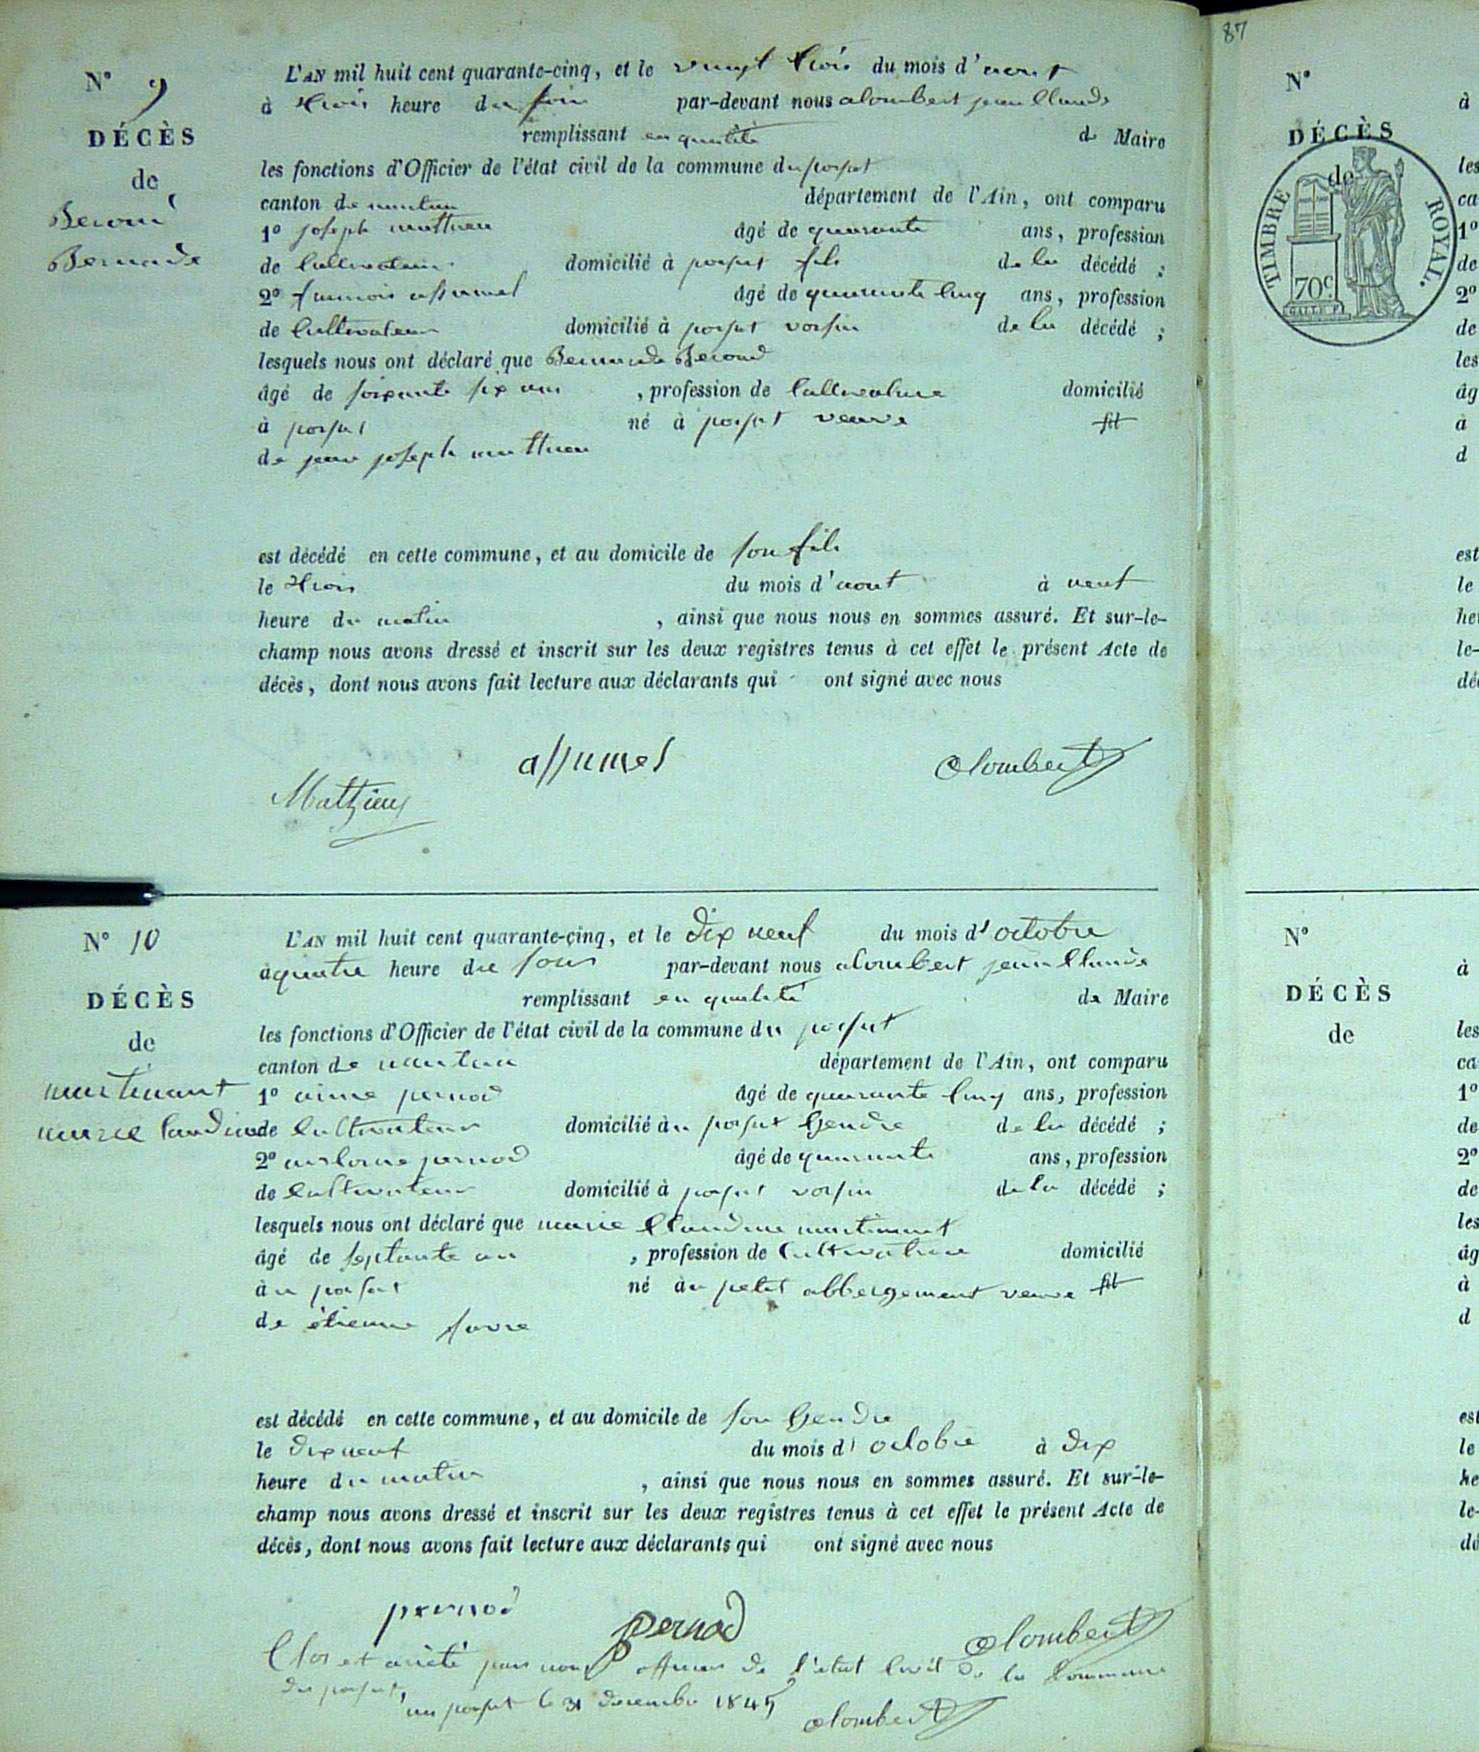 N° 9
DÉCÈS
de
Beroud
Bernarde
L'AN mil huit cent quarante-cinq, et le vingt trois du mois d'aout
à trois heure du soir par-devant nous alombert jean Claude
remplissant en qualité de Maire
les fonctions d'Officier de l'état civil de la commune du poizat
canton de nantua département de l'Ain, ont comparu
1° joseph mathieu âgé de quarante ans, profession
de Cultivateur domicilié à poizat fils de la décédé ;
2° françois assumel âgé de quarante Cinq ans, profession
de Cultivateur domicilié à poizat voisin de la décédé ;
lesquels nous ont déclaré que Bernarde Beroud
âgé de soixante six ans , profession de Cultivatrice domicilié
à poizat né à poizat veuve fil
de jean joseph mathieu
est décédé en cette commune, et au domicile de son fils
le trois du mois d'aout à neuf
heure du matin , ainsi que nous nous en sommes assuré. Et sur-le-
champ nous avons dressé et inscrit sur les deux registres tenus à cet effet le présent Acte de
décès, dont nous avons fait lecture aux déclarants qui ont signé avec nous
assumel alombert
Mathieu
N° 10
DÉCÈS
de
martinant
marie Claudine
L'AN mil huit cent quarante-cinq, et le dix neuf du mois d'octobre
à quatre heure du soir par-devant nous alombert jean Claude
remplissant en qualité de Maire
les fonctions d'Officier de l'état civil de la commune du poizat
canton de nantua département de l'Ain, ont comparu
1° aime pernod âgé de quarante Cinq ans, profession
de Cultivateur domicilié au poizat Gendre de la décédé ;
2° antoine pernod âgé de quarante ans, profession
de Cultivateur domicilié à poizat voisin de la décédé ;
lesquels nous ont déclaré que marie Claudine martinant
âgé de septante an , profession de Cultivatrice domicilié
au poizat né au petit abbergement veuve fil
de étienne favre
est décédé en cette commune, et au domicile de son Gendre
le dix neuf du mois d'octobre à dix
heure du matin , ainsi que nous nous en sommes assuré. Et sur-le-
champ nous avons dressé et inscrit sur les deux registres tenus à cet effet le présent Acte de
décès, dont nous avons fait lecture aux déclarants qui ont signé avec nous
pernod pernod alombert
Clos et arrêté par nous officier de l'état Civil de la Commune
du poizat,
au poizat le 31 decembre 1845 alombert
87
N°
DÉCÈS
de
TIMBRE ROYAL.
70c
N°
DÉCÈS
de